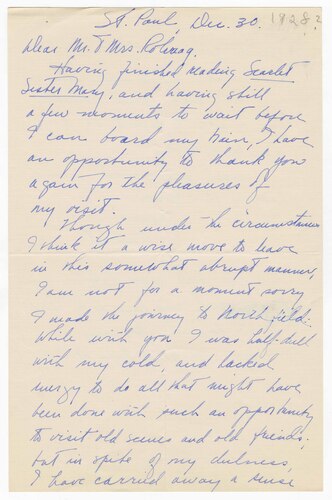 St. Paul, Dec. 30.
1928?
Dear Mr. & Mrs. Rolvaag,
Having finished reading Scarlet
Sister Mary, and having still
a few moments to wait before
I can board my train, I have
an opportunity to thank you
again for the pleasures of
my visit.
Though under the circumstances
I think it a wise move to leave
in this somewhat abrupt manner,
I am not for a moment sorry
I made the journey to Northfield.
While with you I was half-dull
with my cold, and lacked
energy to do all that might have
been done with such an opportunity
to visit old scenes and old friends;
but in spite of my dulness,
I have carried away a sense